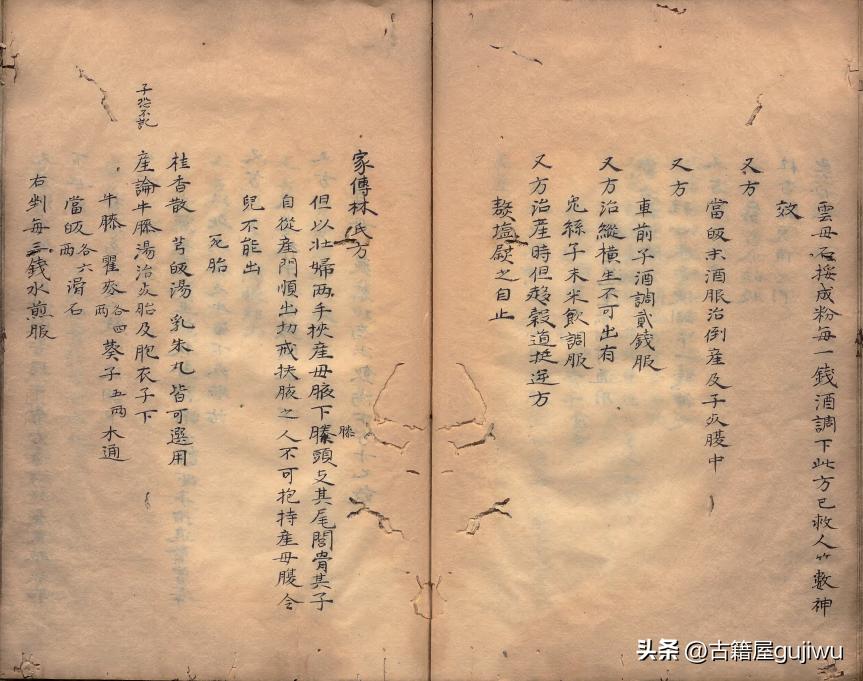 雲母石挼成粉每一錢酒調下此方已救人竹數神
效
又方
當皈末酒服治倒産及子死腹中
又方
車前子酒調貳錢服
又方治縱橫生不可出有
兔絲子末米飲調服
又方治産時但移穀道挺迸方
熬塩熨之自止
家傳林氏方
但以壯婦兩手挾産母腋下膝頭支其尾閭骨其子
膝
自從産門順出切戒扶腋之人不可抱持産母腹令
兒不能出
死胎
桂香散 芎皈湯 乳朱丸 皆可選用
産論牛膝湯治死胎及胞衣不下
子恐不訛
牛膝 瞿麥各四兩 葵子五兩 木通
當皈各六兩 滑石
右剉每三錢水煎服
头条 @古籍屋gujiwu